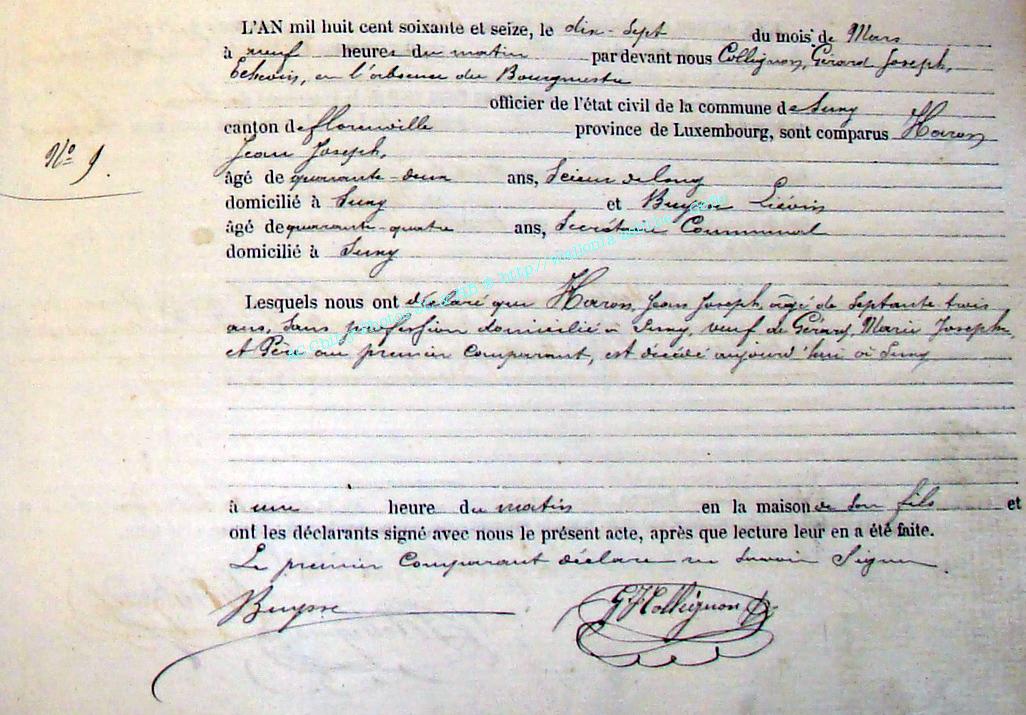 L'AN mil huit cent soixante et seize, le dix-sept du mois de Mars
à neuf heures du matin par devant nous Collignon, Gérard Joseph,
Echevin, en l'absence du Bourgmestre
officier de l'état civil de la commune de Suny
canton de florenville province de Luxembourg, sont comparus Haron
Jean Joseph,
âgé de quarante-deux ans, Scieur de long
domicilié à Suny et Buysse Liévin
âgé de quarante-quatre ans, Secrétaire Communal
domicilié à Suny
Lesquels nous ont déclaré que Haron, Jean Joseph, âgé de septante trois
ans, sans profession domicilié à Suny, veuf de Gérard, Marie Joseph
et Père au premier Comparant, est décédé aujourd'hui à Suny
à une heure du matin en la maison de son fils et
ont les déclarants signé avec nous le présent acte, après que lecture leur en a été faite.
Le premier Comparant déclare ne savoir Signer.
Buysse GJCollignon
N° 9.